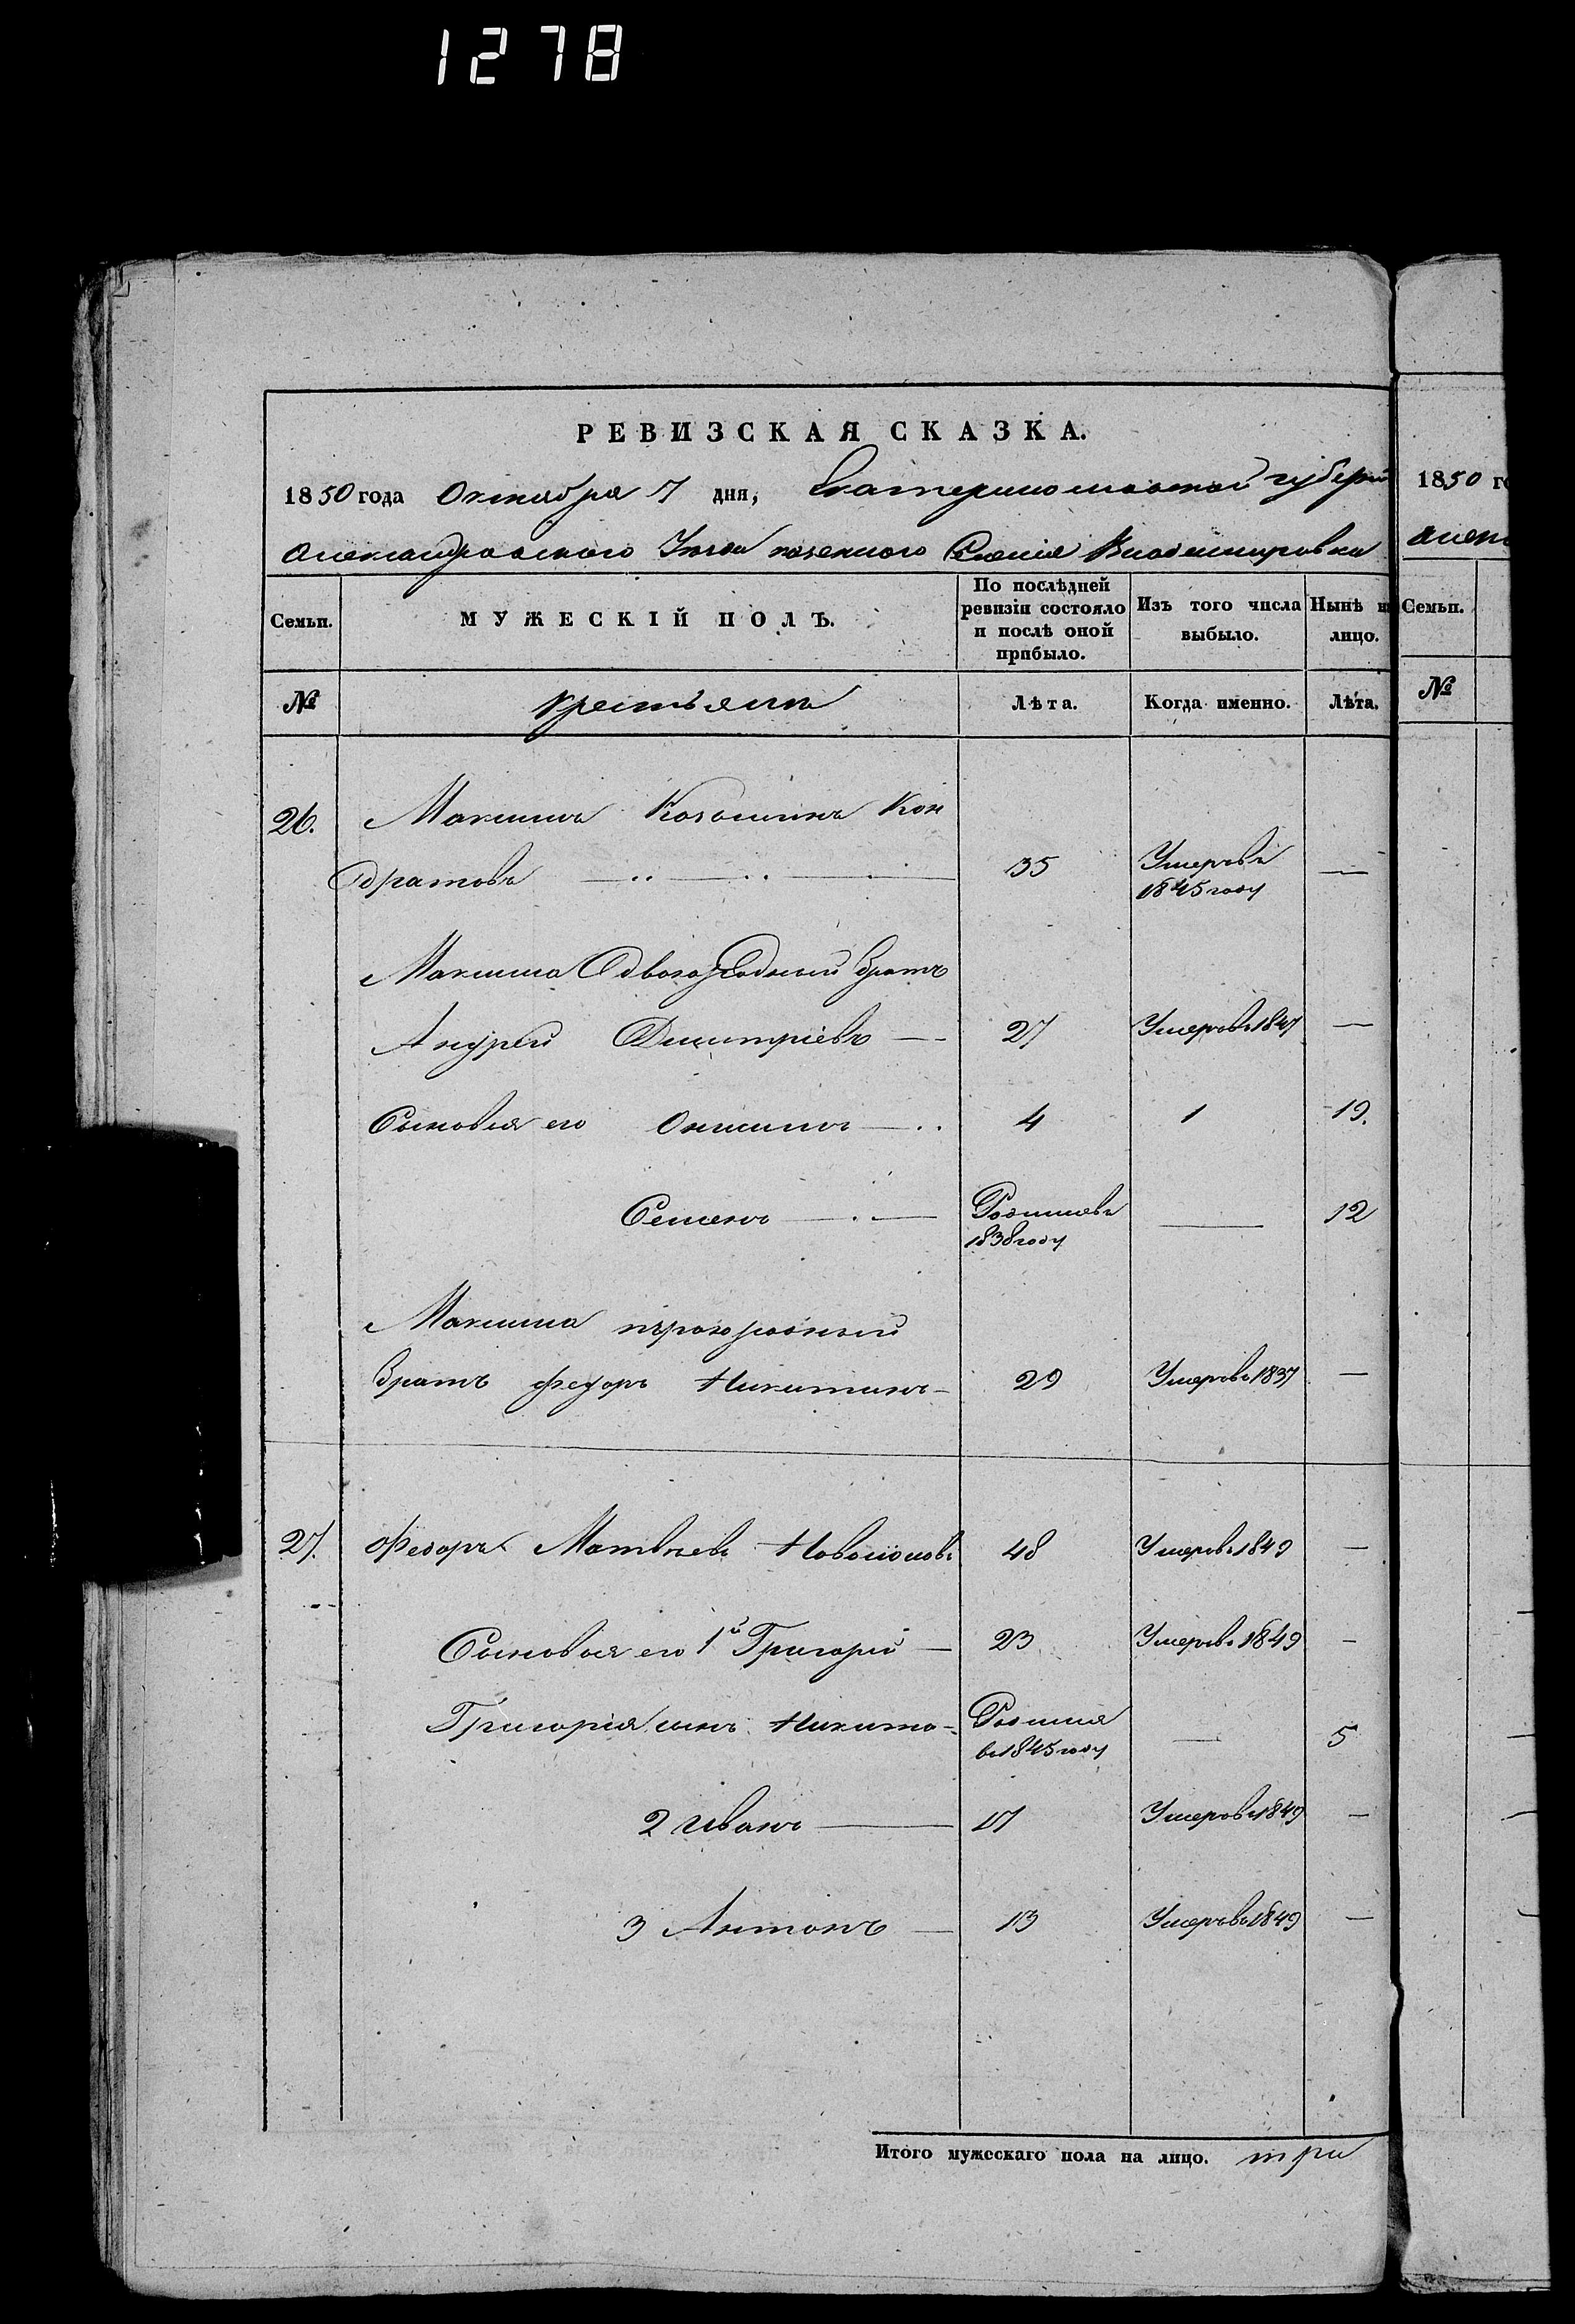 1278
РЕВИЗСКАЯ СКАЗКА.
1850 года Октября 7 дня, Екатеринославской губерніи
Александровского Уезда казенного Селенія Владимировки
Семьи.
МУЖЕСКІЙ ПОЛЪ.
По послѣдней ревизіи состояло и послѣ оной прибыло.
Изъ того числа выбыло.
Нынѣ н лицо.
№
крестьяне
Лѣта.
Когда именно.
Лѣта.
26. Максимъ Кон
дратовъ 35 Умеръ въ
1845 году —
Максима Двоюродный братъ
Андрей Дмитріевъ — 27 Умеръ въ 1847 —
Сыновья его 4 1 19.
Семенъ — Родился въ
1838 году — 12
Максима
братъ Федоръ Никитинъ — 29 Умеръ въ 1837 —
27. Федоръ Матвѣевъ 48 Умеръ въ 1849 —
Сыновья его 1й Григорій — 23 Умеръ въ 1849 —
Григорія сынъ Никита — Родился
въ 1845 году — 5
2 Иванъ — 17 Умеръ въ 1849 —
3 Антонъ — 13 Умеръ въ 1849 —
Итого мужескаго пола на лицо. три
1850 го
Алекс
Семьи.
№